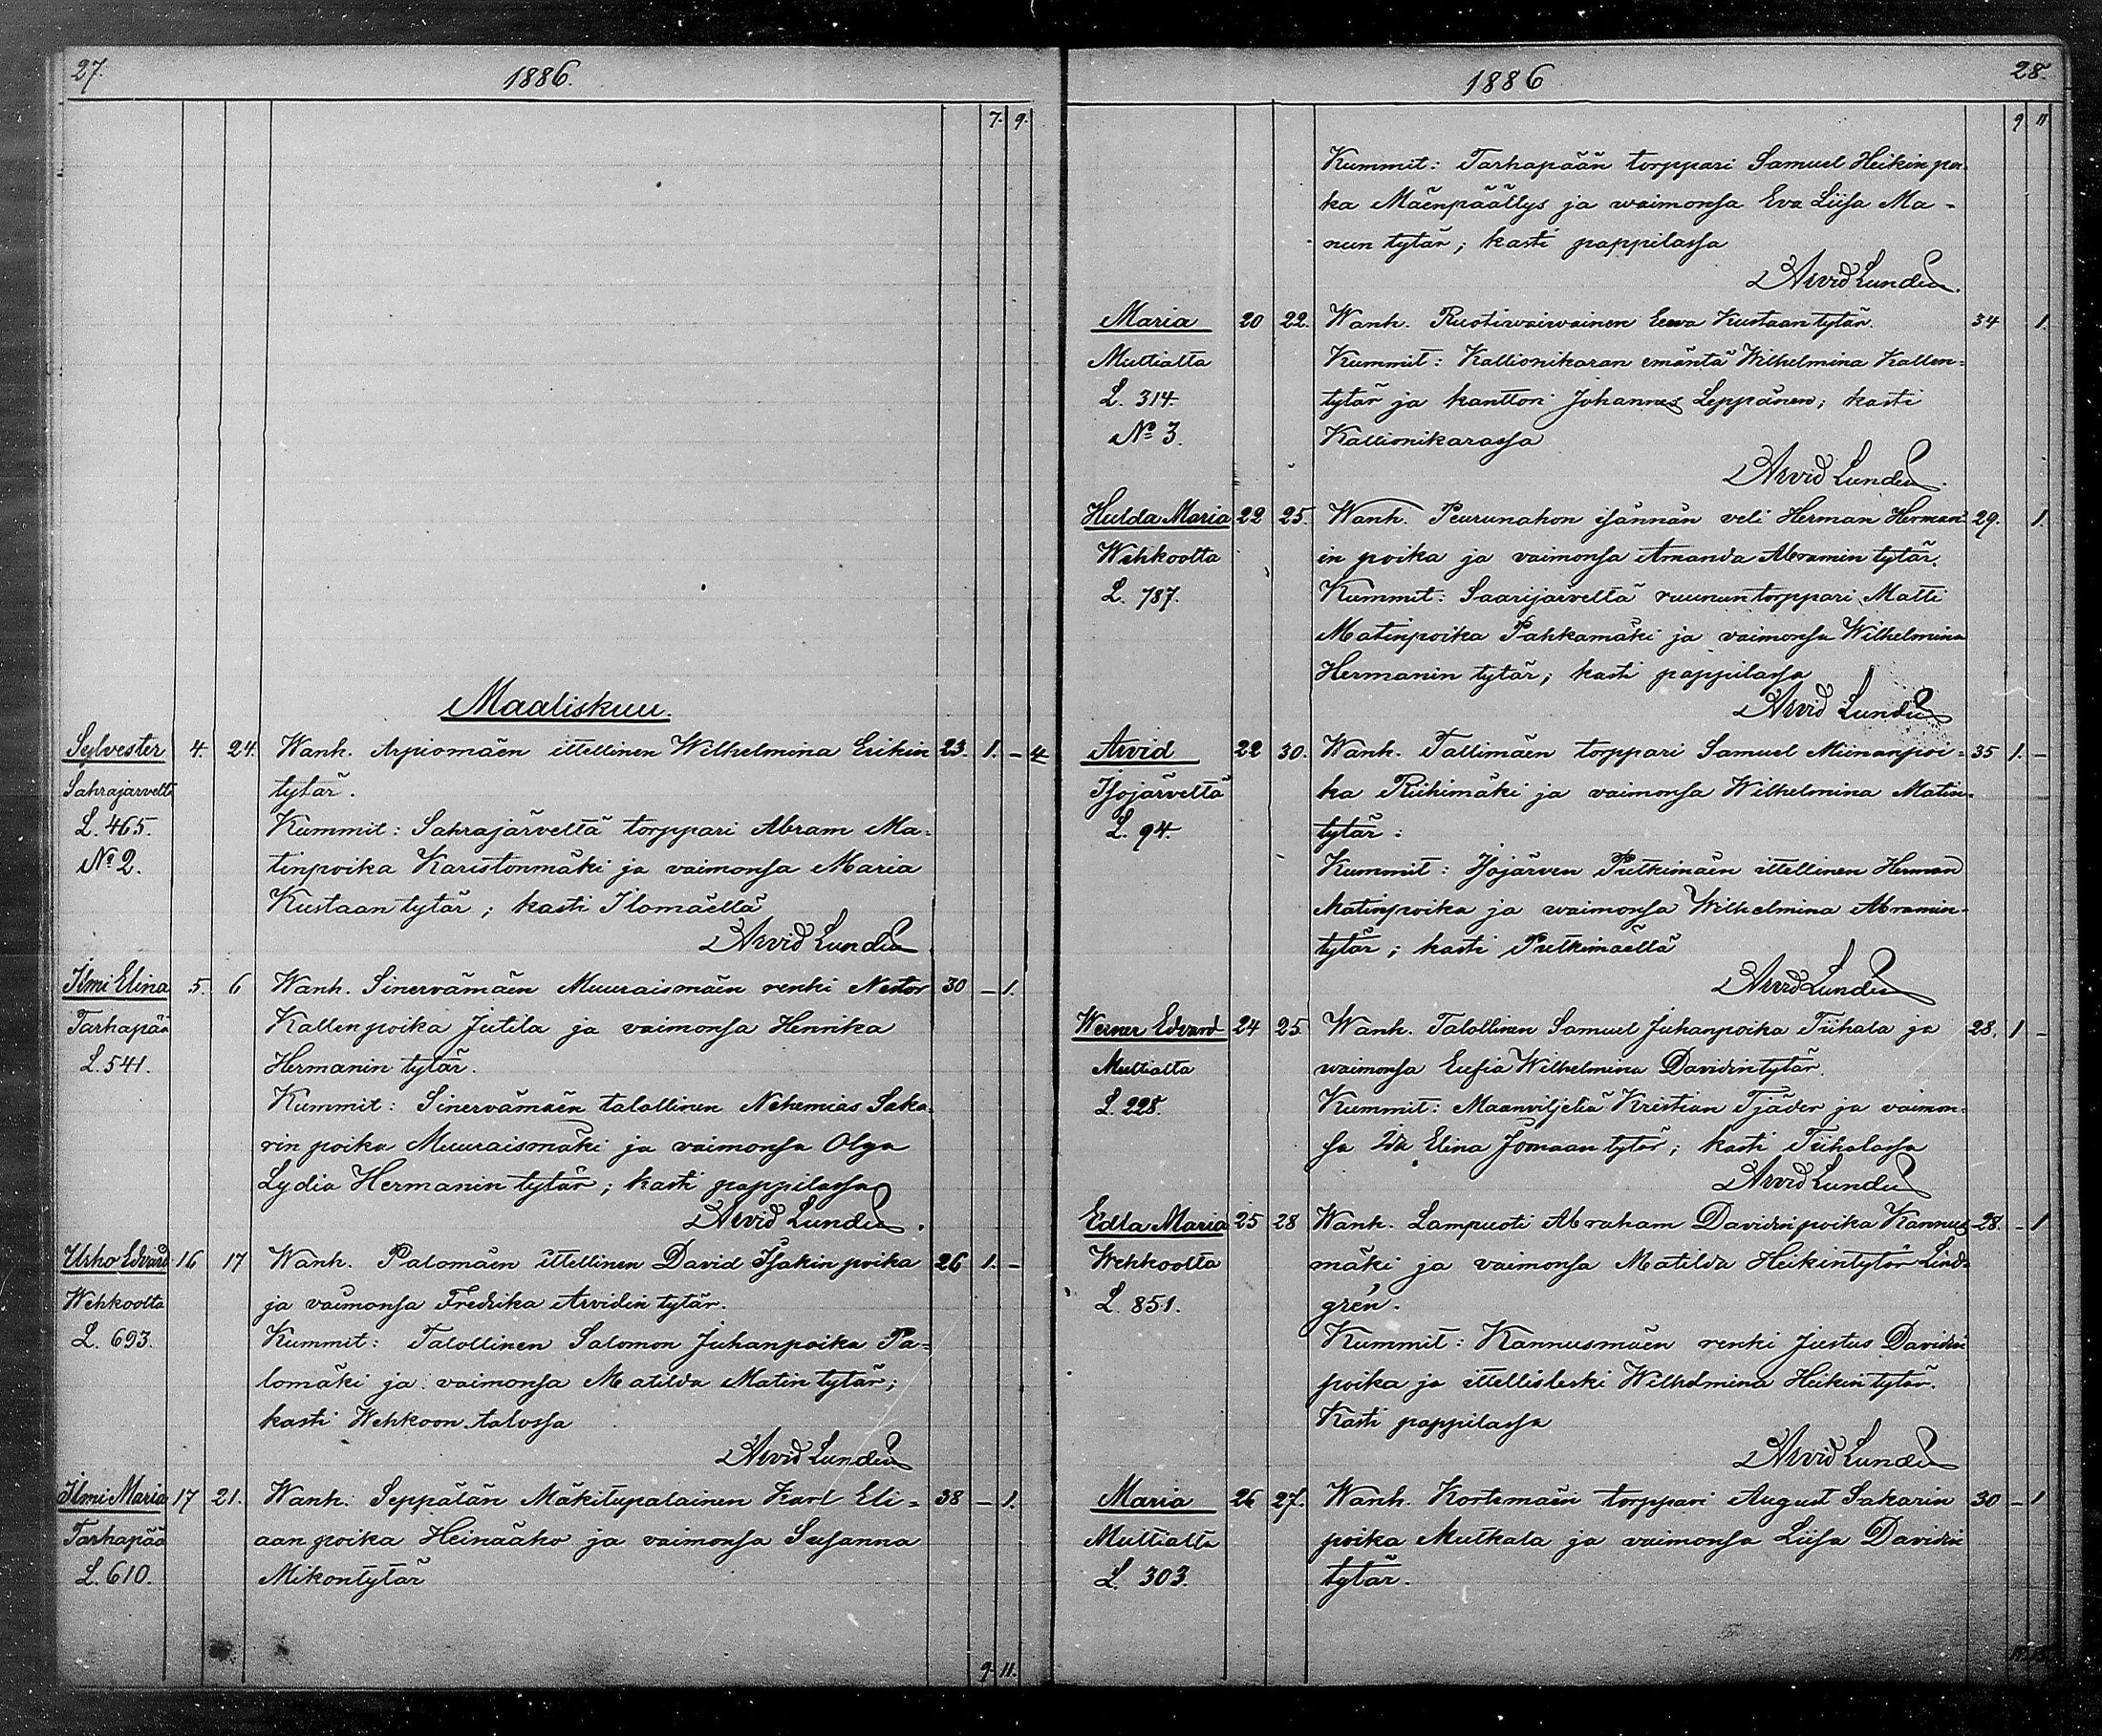 27.
1886.
7. 9.
Maaliskuu.
Sylvester 4. 24. Wanh. Arpiomäen ittellinen Wilhelmina Erikin 23. 1. – 4
Sahrajärveltä tytär.
L. 465. Kummit: Sahrajärveltä torppari Abram Ma=
No 2. tinpoika Karistonmäki ja vaimonsa Maria
Kustaan tytär; kasti Ilomäellä
Arvid Lundén
Ilmi Elina 5. 6 Wanh. Sinervämäen Muuraismäen renki Nestor 30 – 1.
Tarhapää Kallenpoika Jutila ja vaimonsa Henrika
L. 541. Hermanin tytär.
Kummit: Sinervämäen talollinen Nehemias Saka=
rin poika Muuraismäki ja vaimonsa Olga
Lydia Hermanin tytär; kasti pappilassa
Arvid Lundén.
Urho Edvard 16 17 Wanh. Palomäen ittellinen David Isakin poika 26 1. –
Wehkoolta ja vaimonsa Fredrika Arvidin tytär.
L. 693. Kummit: Talollinen Salomon Juhanpoika Pa=
lomäki ja vaimonsa Matilda Matin tytär;
kasti Wehkoon talossa
Arvid Lundén
Ilmi Maria 17 21. Wanh. Seppälän Mäkitupalainen Karl Eli= 38 – 1.
Tarhapää aan poika Heinääho ja vaimonsa Susanna
L. 610. Mikontytär
9. 11.
1886
28.
9 11
Kummit: Tarhapään torppari Samuel Heikin poi=
ka Mäenpäällys ja waimonsa Eva Liisa Ma=
nun tytär; kasti pappilassa
Arvid Lundén.
Maria 20 22. Wanh. Ruotiwaiwainen Eewa Kustaan tytär. 34 1.
Multialta Kummit: Kallionikaran emäntä Wilhelmina Kallen=
L. 314. tytär ja kanttori Johannes Leppänen; kasti
No 3. Kallionikarassa
Arvid Lundén.
Hulda Maria 22 25. Wanh. Peurunahon isännän veli Herman Herman= 29. 1.
Wehkoolta in poika ja vaimonsa Amanda Abramin tytär.
L. 787. Kummit: Saarijärveltä ruununtorppari Matti
Matinpoika Pahkamäki ja vaimonsa Wilhelmina
Hermanin tytär; kasti pappilassa
Arvid Lundén
Arvid 22 30. Wanh. Tallimäen torppari Samuel Miinanpoi= 35 1. –
Isojärveltä ka Riihimäki ja vaimonsa Wilhelmina Matin=
L. 94. tytär.
Kummit: Isojärven Putkimäen ittellinen Herman
Matinpoika ja waimonsa Wilhelmina Abramin=
tytär; kasti Putkimäellä
Arvid Lundén
Werner Edvard 24 25 Wanh. Talollinen Samuel Juhanpoika Tiihala ja 28. 1 –
Multialta waimonsa Eufia Wilhelmina Davidintytär.
L. 228. Kummit: Maanviljeliä Kristian Tjäder ja vaimon=
sa Ida Elina Joonaan tytär; kasti Tiihalassa
Arvid Lundén
Edla Maria 25 28 Wanh. Lampuoti Abraham Davidin poika Kannus= 28. – 1
Wehkoolta mäki ja vaimonsa Matilda Heikintytär Lind=
L. 851. grén.
Kummit: Kannusmäen renki Justus Davidin
poika ja ittellisleski Wilhelmina Heikin tytär.
Kasti pappilassa
Arvid Lundén
Maria 26 27. Wanh. Kortemäen torppari August Sakarin 30 – 1
Multialta poika Mutkala ja vaimonsa Liisa Davidin
L. 303. tytär.